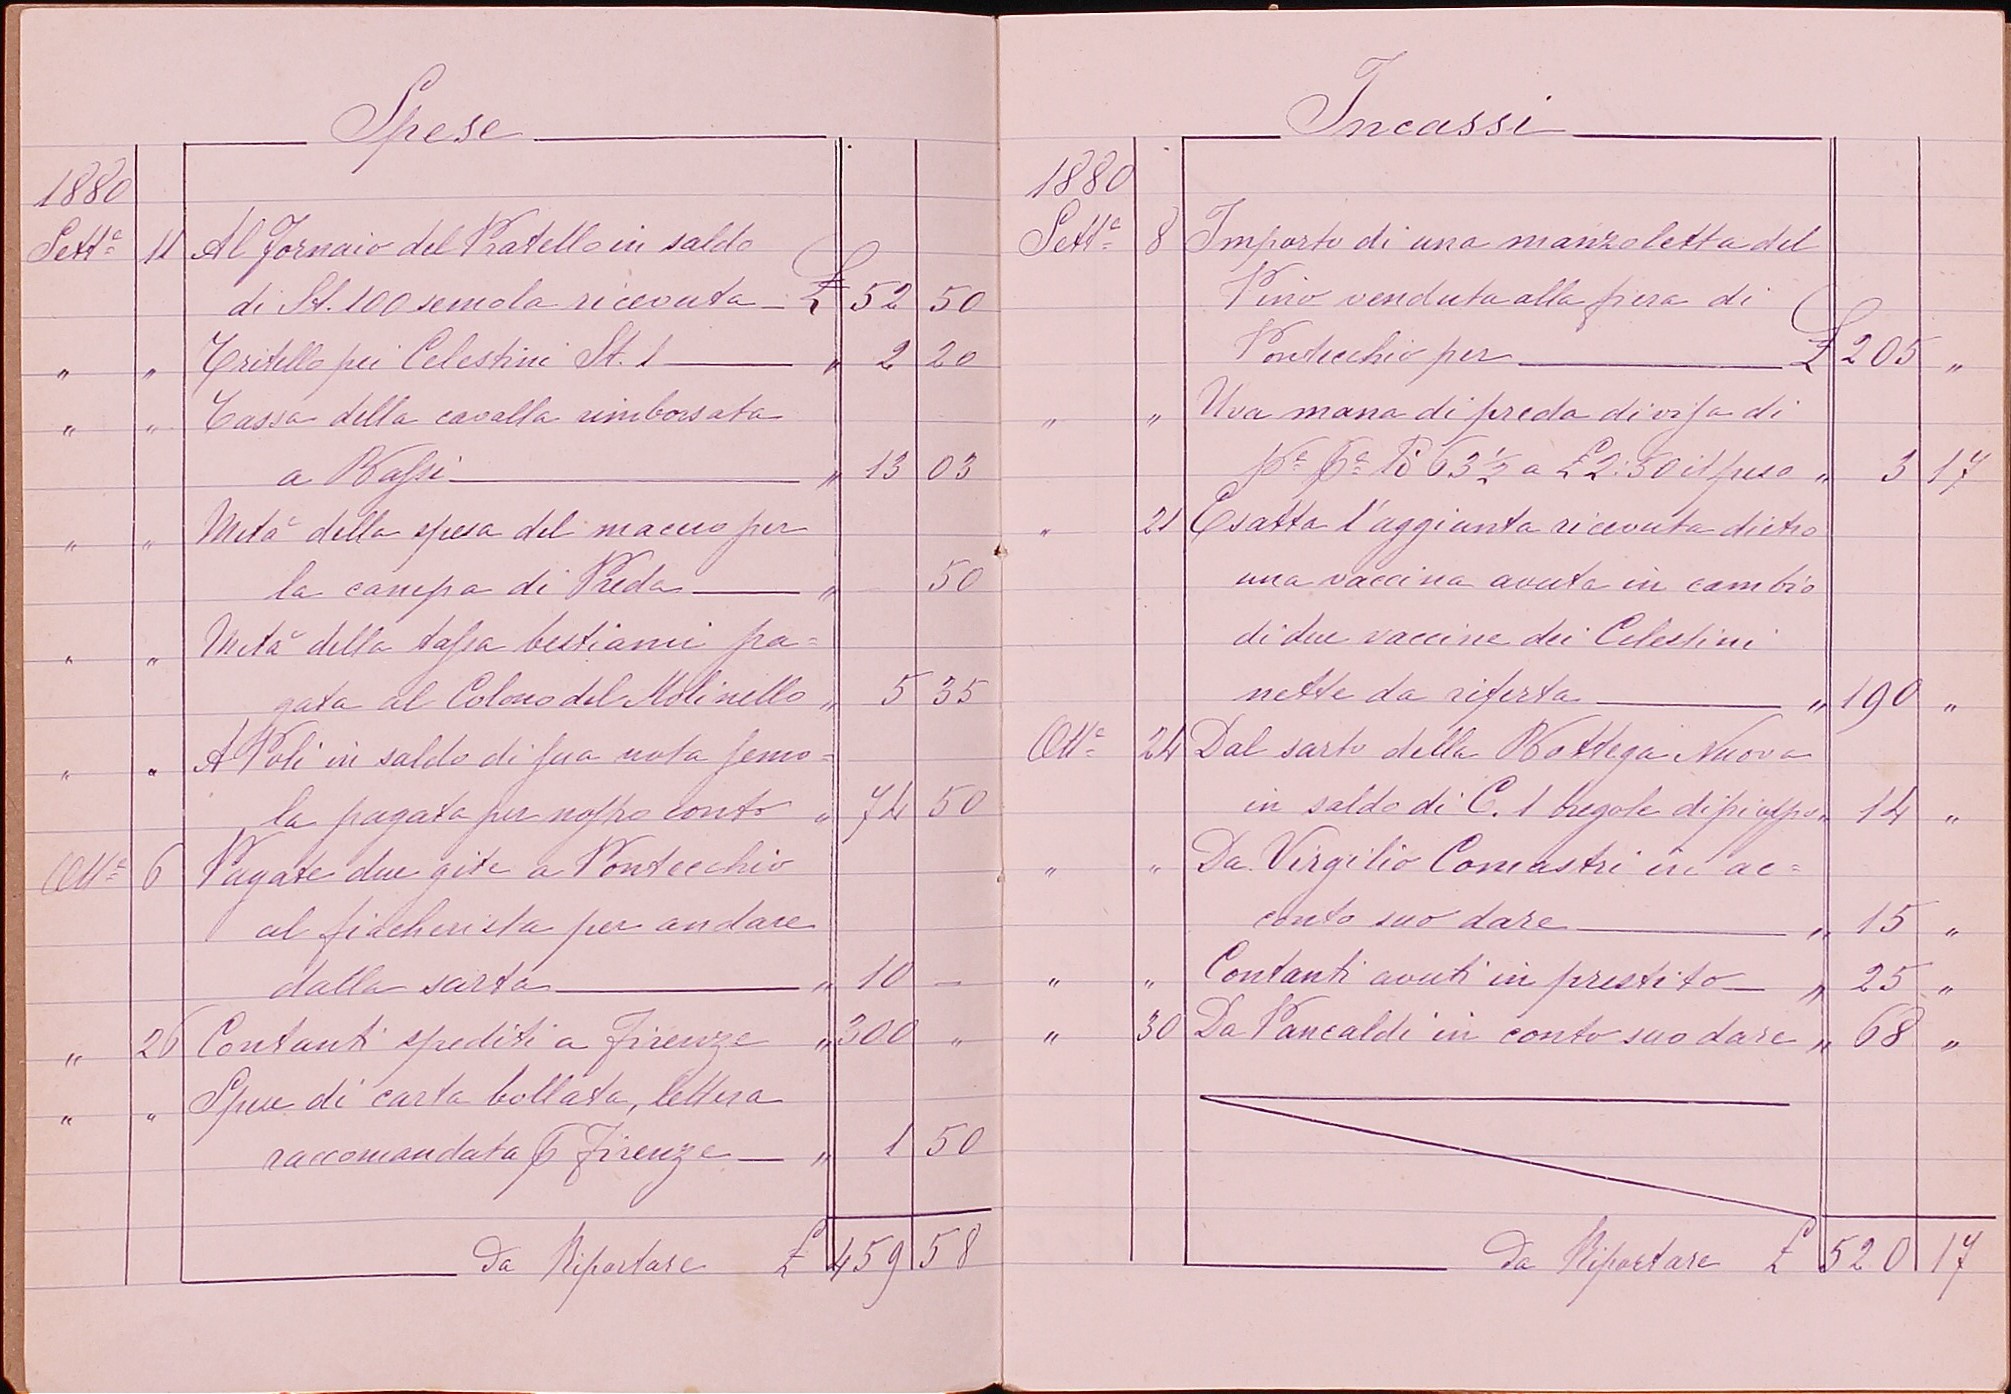 Spese
1880
Sett.e 11 Al Fornaio del Pratello in saldo
di St. 100 semola ricevuta £ 52 50
" " Tritello pei Celestini St. 1 " 2 20
" " Tassa della cavalla rimborsata
a Bassi " 13 03
" " Metà della spesa del macero per
la canepa di Preda " 50
" " Metà della tassa bestiami pa=
gata al Colono del Molinello " 5 35
" " A Poli in saldo di sua nota semo=
la pagata per nostro conto " 74 50
Ott.e 6 Pagate due gite a Pontecchio
al fiacherista per andare
dalla sarta " 10 —
" 26 Contanti spediti a Firenze " 300 "
" " Spese di carta bollata, lettera
raccomandata Firenze " 1 50
Da Riportare £ 459 58
Incassi
1880
Sett.e 8 Importo di una manzoletta del
Pino venduta alla fiera di
Pontecchio per £ 205 "
" " Una mana di preda divisa di
63 ½ a £ 2:50 il peso " 3 17
" 21 Esatta l'aggiunta ricevuta dietro
una vaccina avuta in cambio
di due vaccine dei Celestini
nette da riferta " 190 "
Ott.e 24 Dal sarto della Bottega Nuova
in saldo di C. 1 tregole di pioppo " 14 "
" " Da Virgilio Comastri in ac=
conto suo dare " 15 "
" " Contanti avuti in prestito " 25 "
" 30 Da Pancaldi in conto suo dare " 68 "
Da Riportare £ 520 17